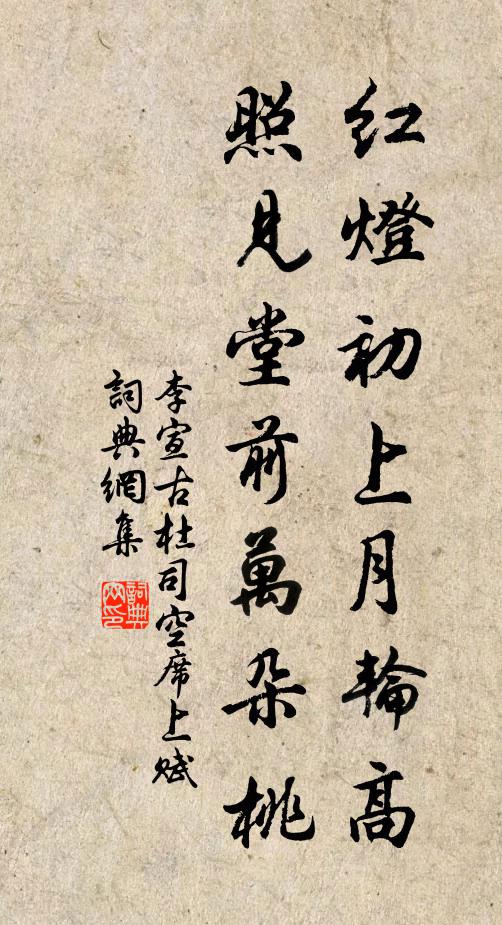 紅燈初上月輪高
照見堂前萬朵桃
李宣古杜司空席上賦
詞典網集
詞典網印